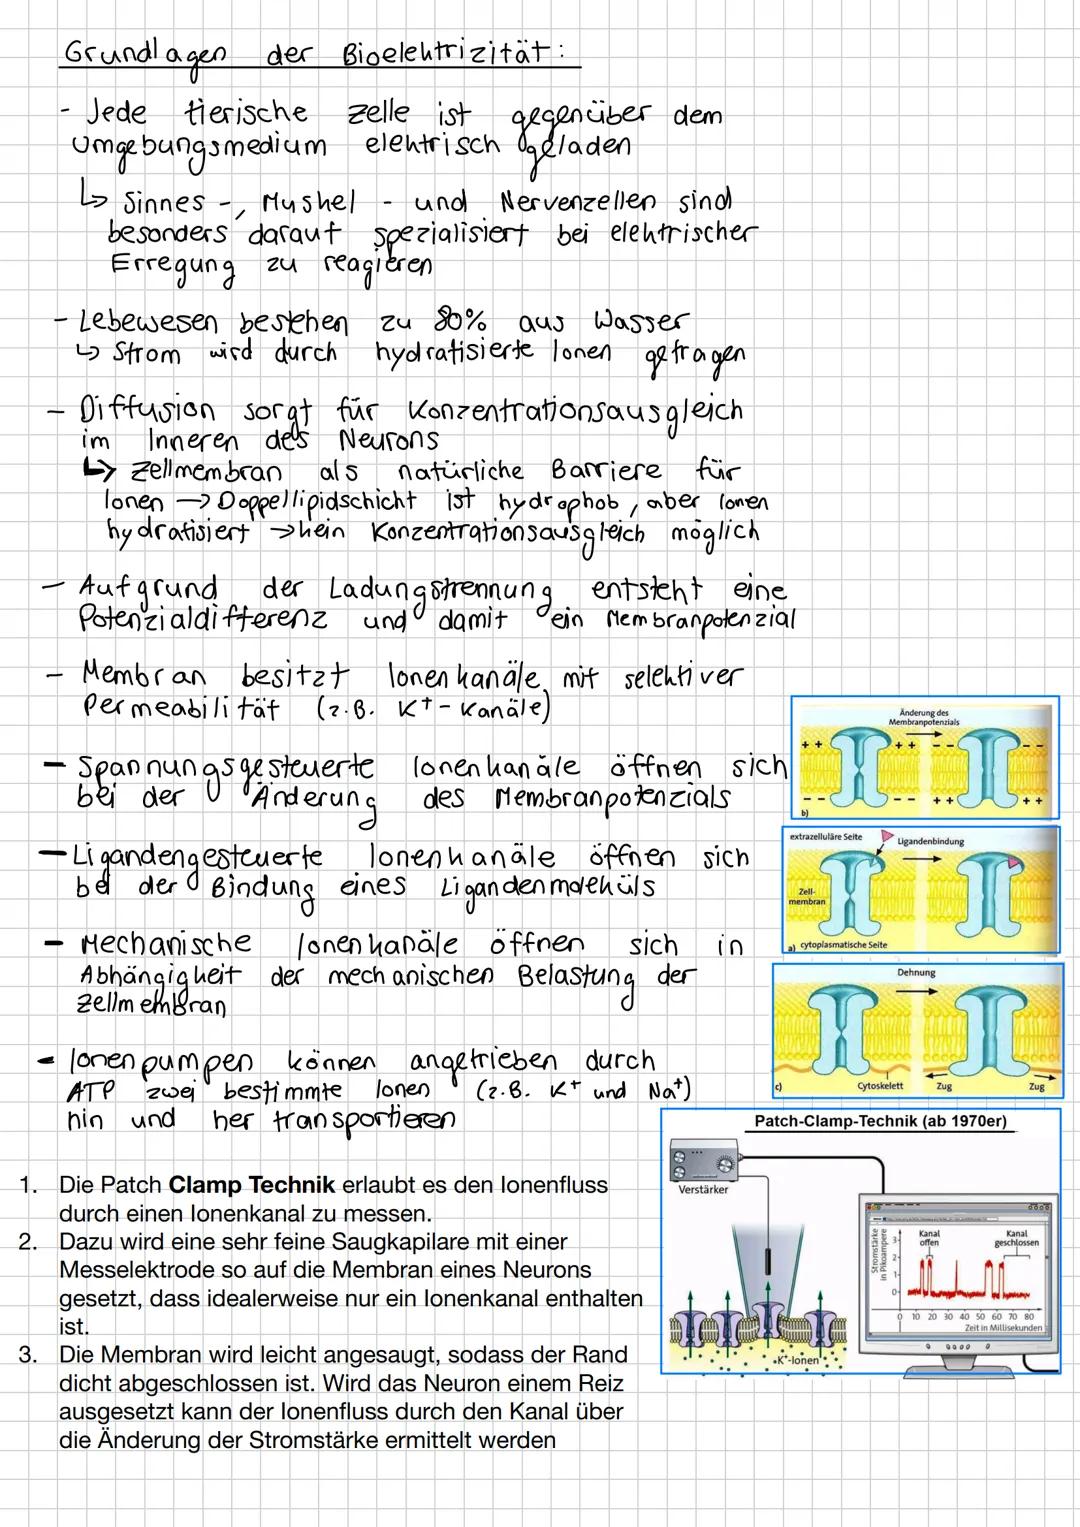 Grundlagen der Bioelektrizität:
- Jede tierische Zelle ist gegenüber dem
Umgebungsmedium elektrisch geladen
↳ Sinnes-, Muskel- und Nervenzellen sind
besonders darauf spezialisiert bei elektrischer
Erregung zu reagieren
- Lebewesen bestehen zu 80% aus Wasser
↳ Strom wird durch hydratisierte Ionen getragen
- Diffusion sorgt für Konzentrationsausgleich
im Inneren des Neurons
↳ Zellmembran als natürliche Barriere für
Ionen → Doppellipidschicht ist hydrophob, aber Ionen
hydratisiert → kein Konzentrationsausgleich möglich
- Aufgrund der Ladungstrennung entsteht eine
Potenzialdifferenz und damit ein Membranpotenzial
- Membran besitzt Ionenkanäle mit selektiver
Permeabilität (z.B. K+-Kanäle)
- Spannungsgesteuerte Ionenkanäle öffnen sich
bei der Änderung des Membranpotenzials
- Ligandengesteuerte Ionenkanäle öffnen sich
bei der Bindung eines Ligandenmoleküls
- Mechanische Ionenkanäle öffnen sich in
Abhängigkeit der mechanischen Belastung der
Zellmembran
- Ionenpumpen können angetrieben durch
ATP zwei bestimmte Ionen (z.B. K+ und Na+)
hin und her transportieren
Änderung des
Membranpotenzials
++ ++ -- --
-- -- ++ ++
b)
extrazelluläre Seite
Ligandenbindung
Zell-
membran
a) cytoplasmatische Seite
Dehnung
c) Cytoskelett Zug Zug
Patch-Clamp-Technik (ab 1970er)
Verstärker
Stromstärke
in Pikoampere
Kanal
offen
Kanal
geschlossen
3
2
1
0
0 10 20 30 40 50 60 70 80
Zeit in Millisekunden
K+-Ionen
1. Die Patch Clamp Technik erlaubt es den Ionenfluss
durch einen Ionenkanal zu messen.
2. Dazu wird eine sehr feine Saugkapilare mit einer
Messelektrode so auf die Membran eines Neurons
gesetzt, dass idealerweise nur ein Ionenkanal enthalten
ist.
3. Die Membran wird leicht angesaugt, sodass der Rand
dicht abgeschlossen ist. Wird das Neuron einem Reiz
ausgesetzt kann der Ionenfluss durch den Kanal über
die Änderung der Stromstärke ermittelt werden